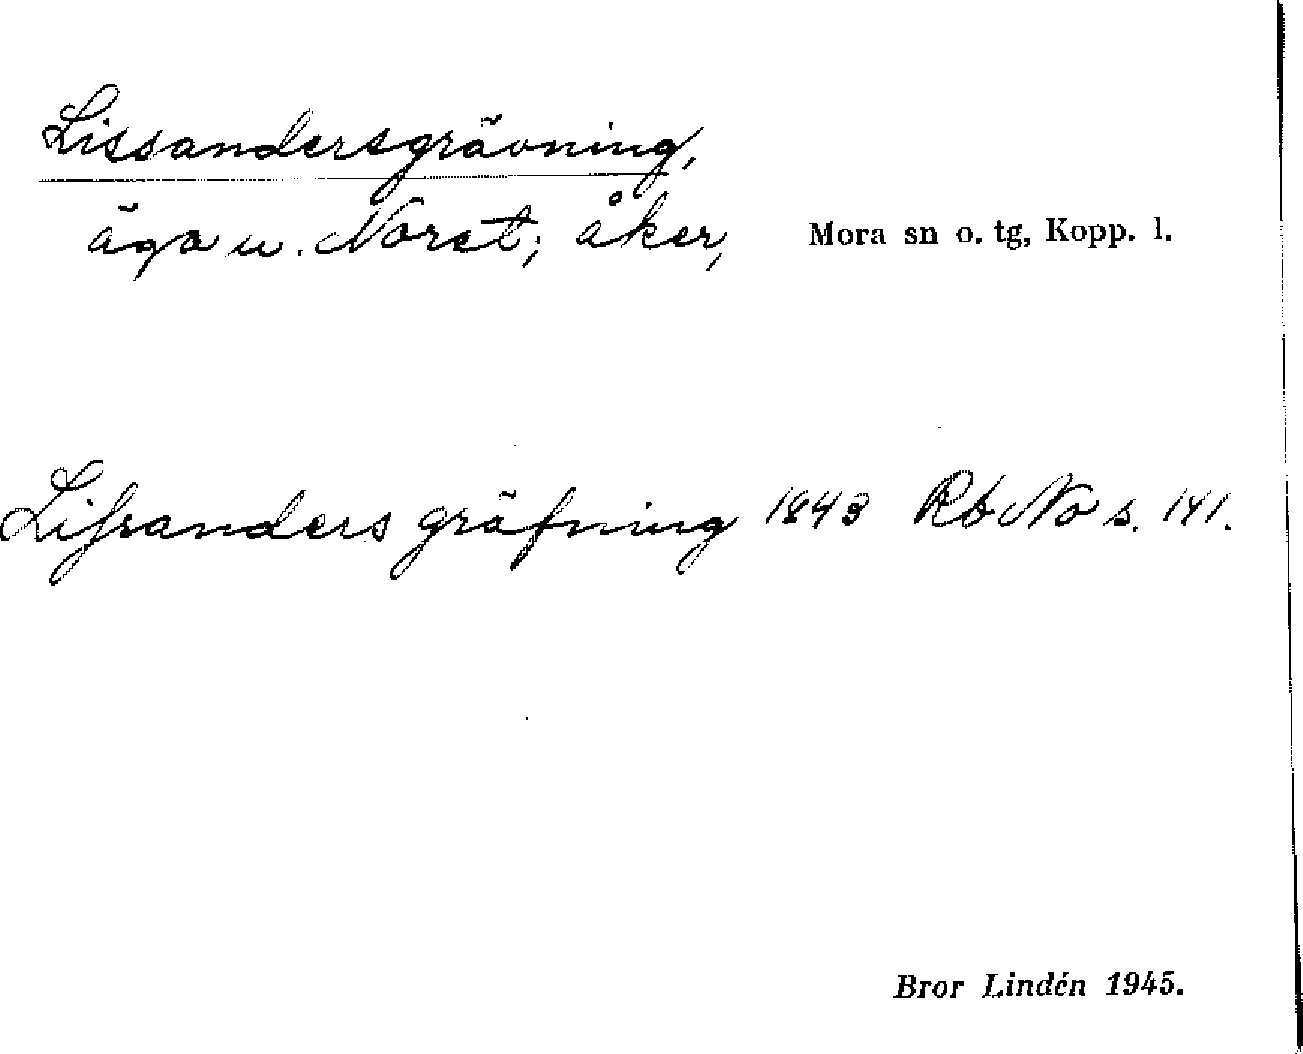 Lissandersgrävning,
äga u. Noret; åker, Mora sn o. tg, Kopp. l.
Lissanders gräfning 1843 Rb No s. 141.
Bror Lindén 1945.